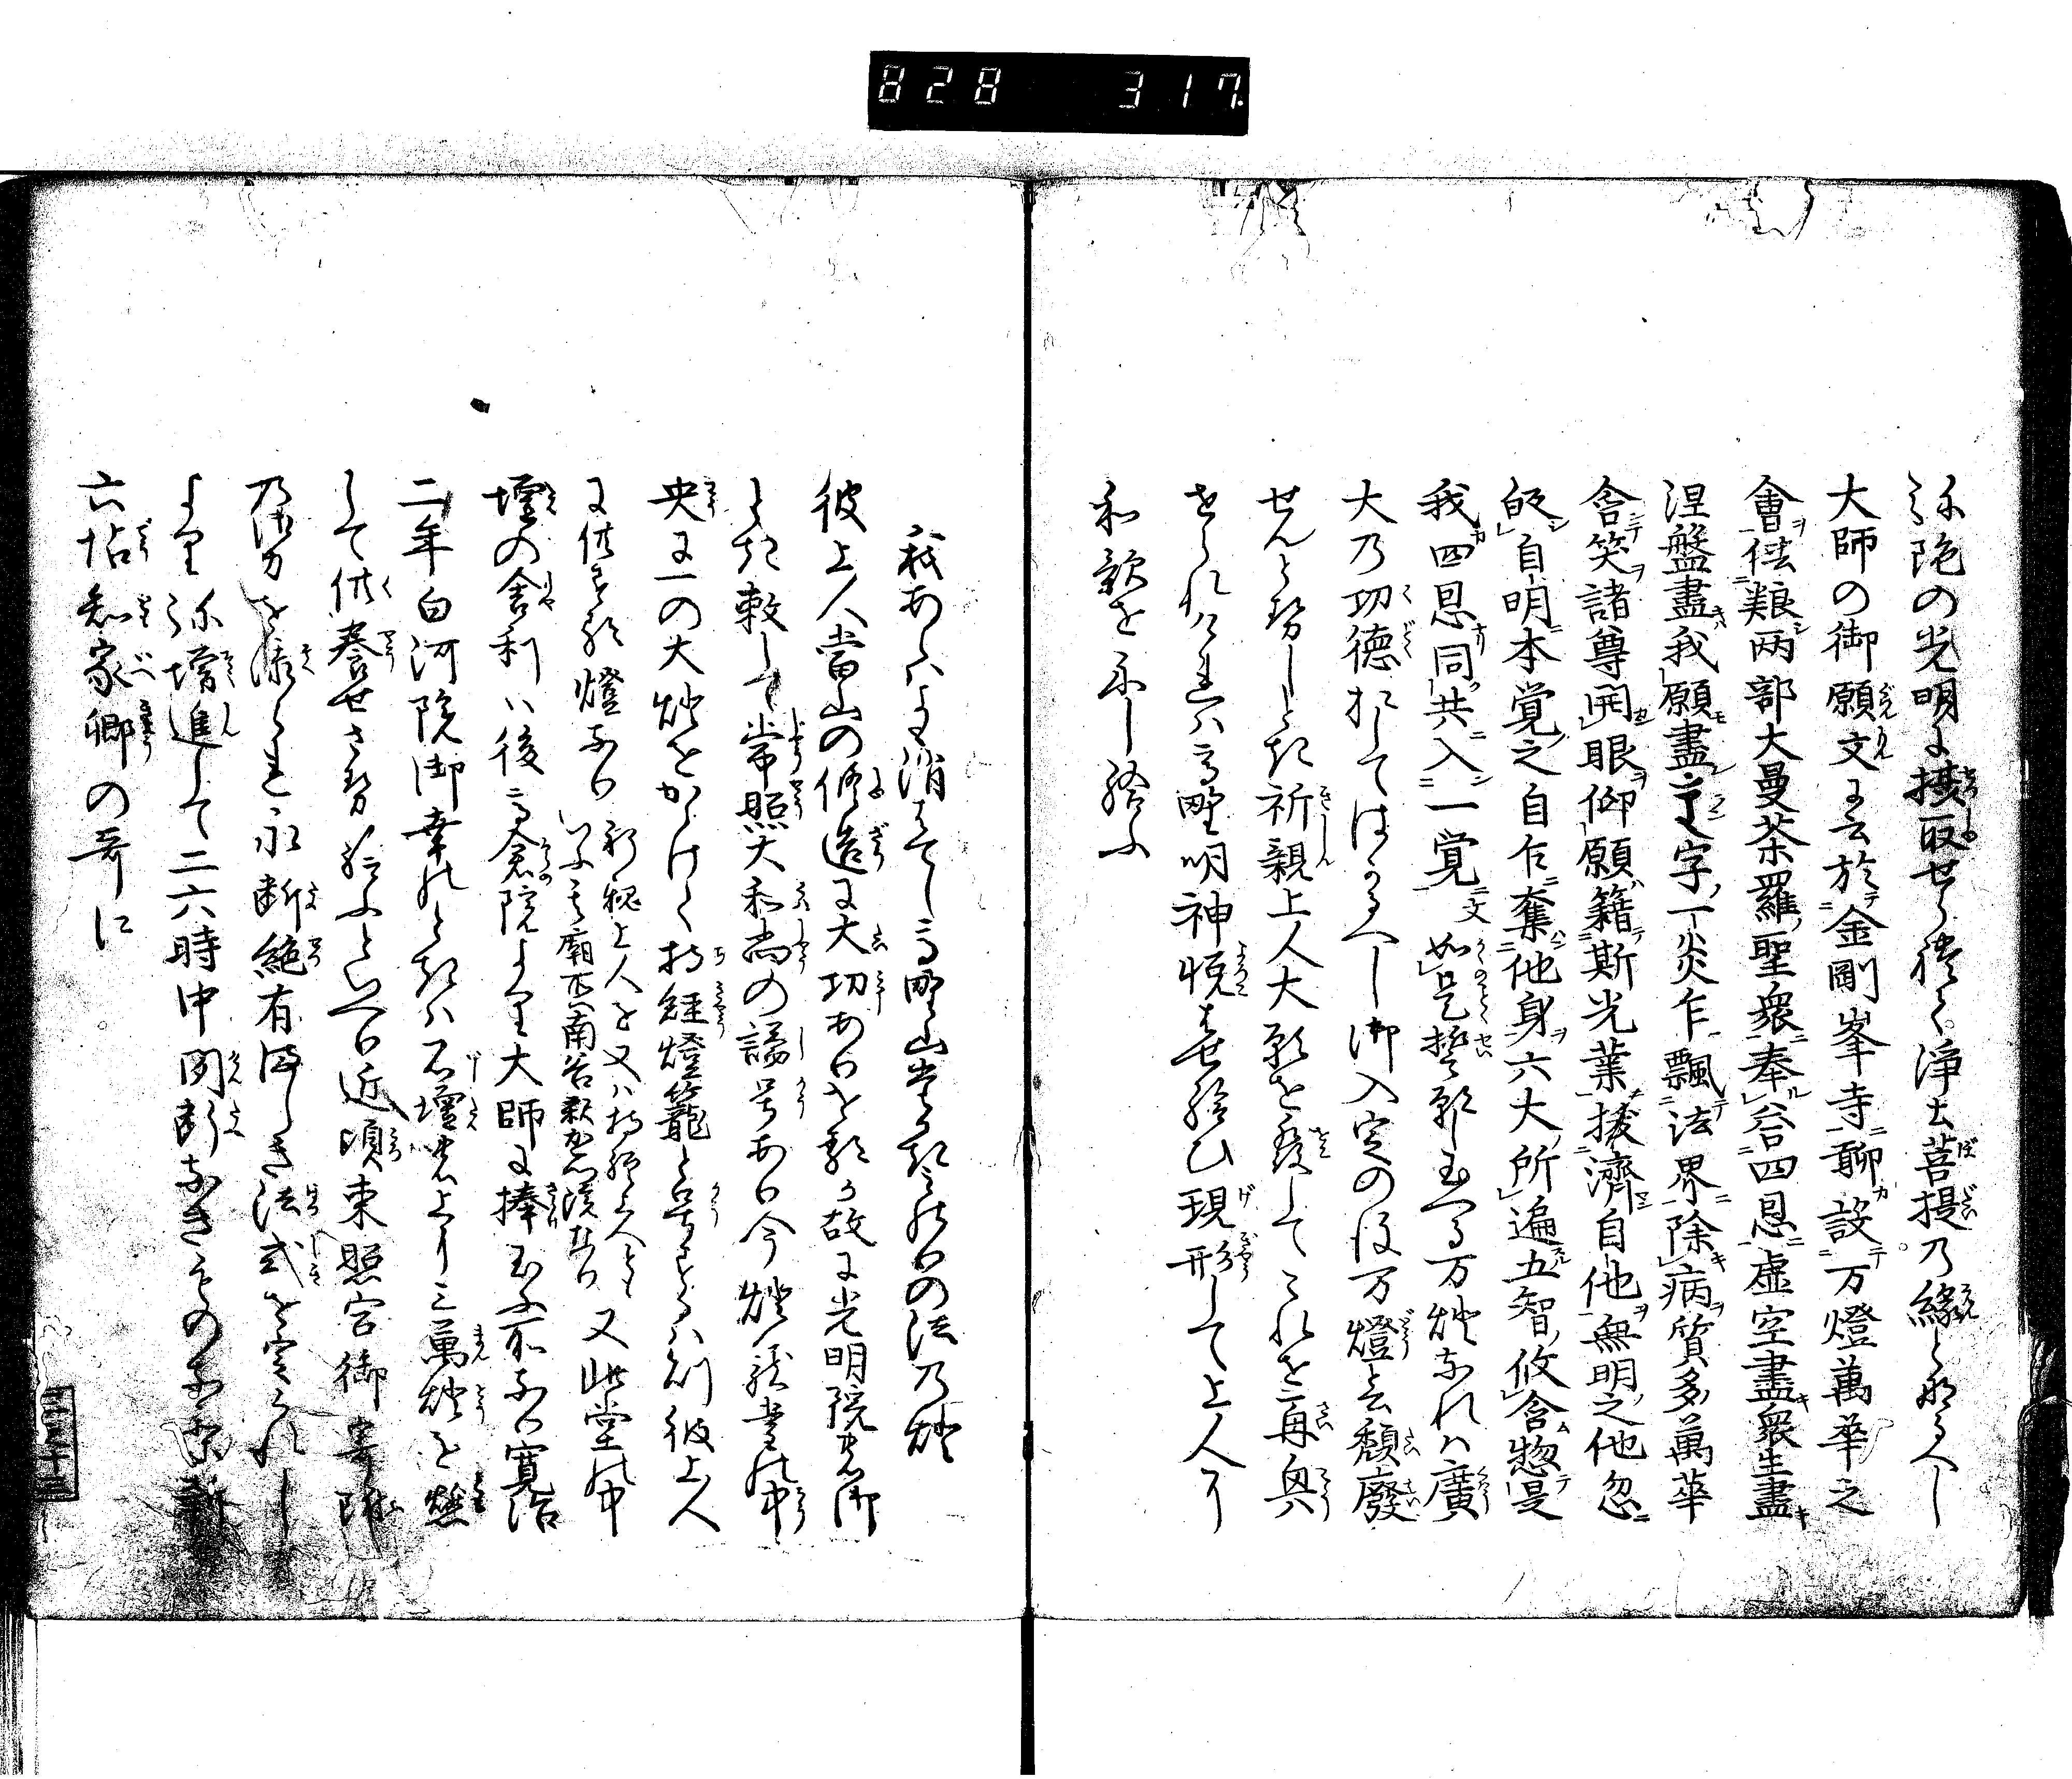 828 317
弥陀の光明に摂取せられ浄土菩提乃縁となるへし
大師の御願文に云於金剛峯寺聊設万燈萬華之
會供粮两部大曼荼羅聖衆奉答四恩虚空盡衆生盡
涅盤盡我願盡 字一炎乍飄法界除病質多萬華
含笑諸尊開眼仰願籍斯光業援濟自他無明之他忽
皈自明本覚之自乍奪他身六大所遍五智攸含惣是
我四恩同共入一覚文如是誓願玉へる万灯なれハ廣
大乃功徳おしてはかるへし御入定のほ万燈も頽廢
せんとせしとき祈親上人大願を發してこれを再興
せられけれハ高野明神悦はせ給ひ現形して上人に
和歌を示し給ふ
我あらハよも消はてし高野山たかきみのりの法乃灯
彼上人當山の修造に大功あり 故に光明院の御
とき敕して常照大和尚の謚号あり今灯籠堂の中
央に一の大灯をかけて持経燈籠と号するハ則彼上人
に供する燈なり
祈親上人を又ハ持経上人とも
いふ其廟所南谷 なり
又此堂の中
壇の舎利ハ後高倉院より大師に捧玉ふ所なり寛治
二年白河院御幸のときハ石壇の上に三萬灯を燃
して供養せさせ給ふといへり近頃東照宮御寄附
乃 力を添られ永断絶有ましき法式を定られし
より弥増進して二六時中間断なきものなり新
六帖知家卿の哥に